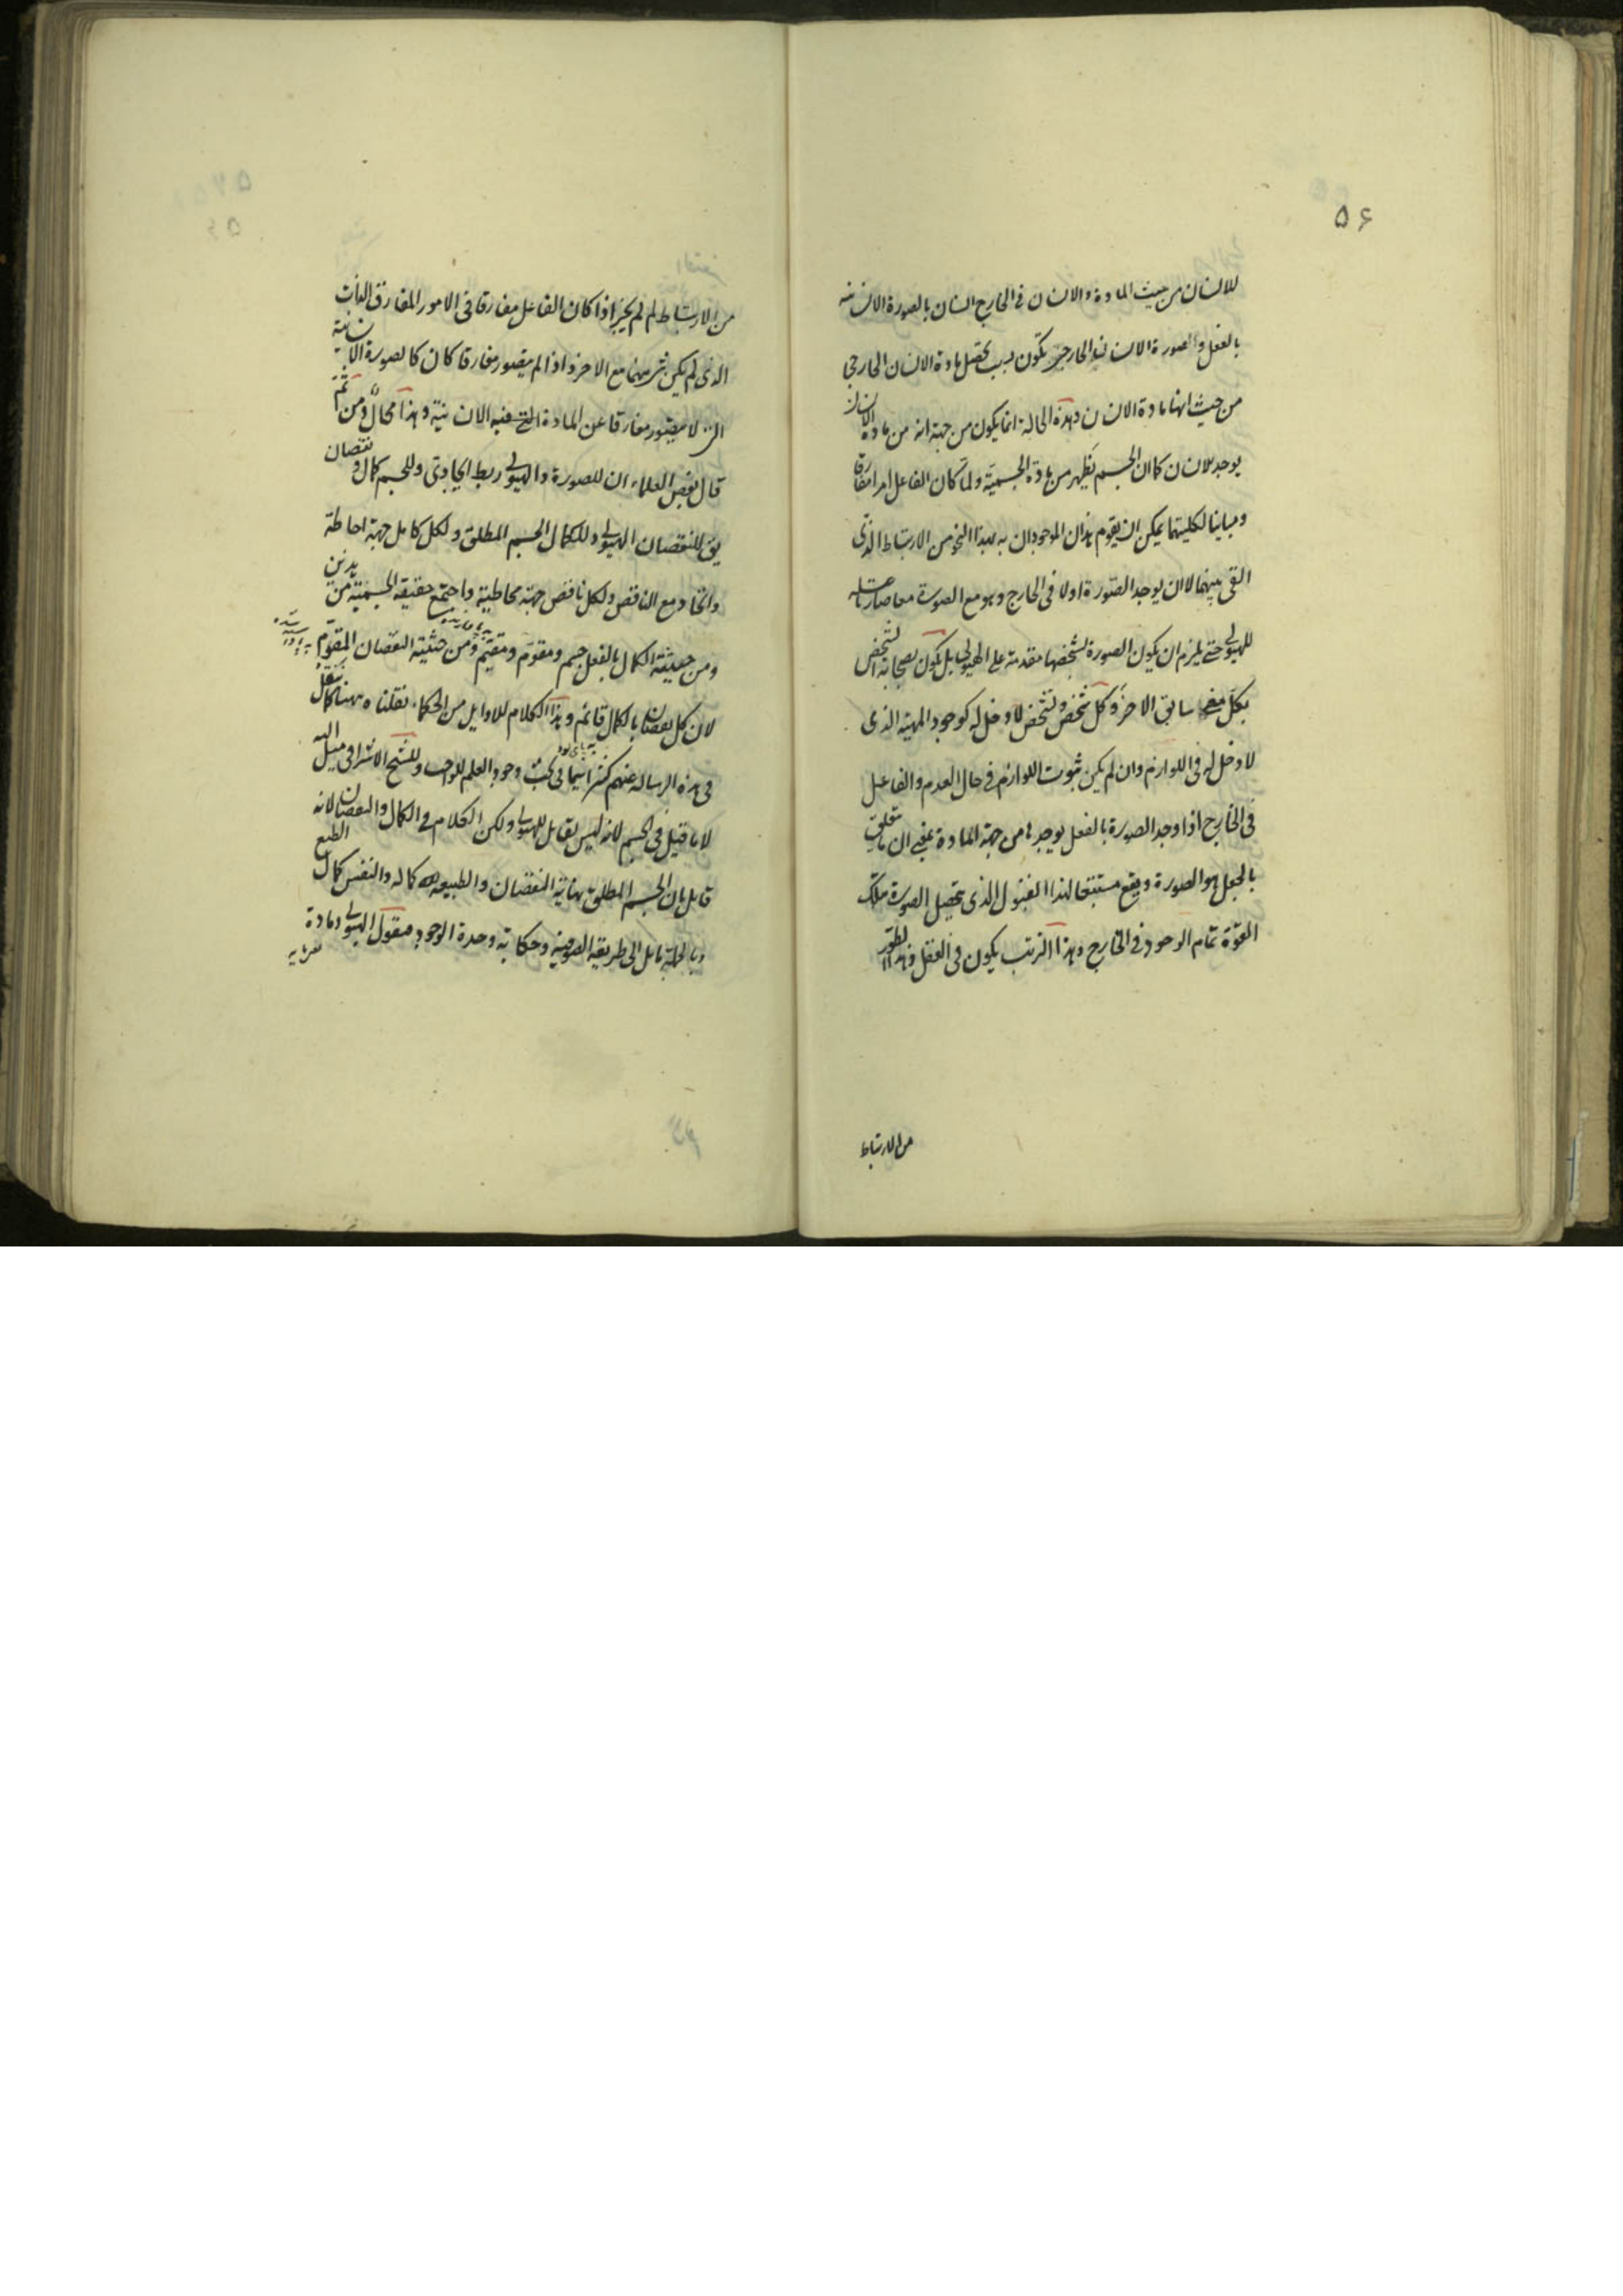 ٥٦
للانسان من حيث المادة والانسان فى الخارج انسان بالصورة الانسانية
بالفعل والصورة الانسانية الخارجية تكون بسبب تحصل مادة الانسان الخارجى
من حيث انها مادة الانسان وهذه الحالة انما يكون من جهة انه من مادة الانسان
يوجد للانسان كما ان الجسم يظهر من مادة الجسمية ولما كان الفاعل امرا مفارقا
ومباينا لكليتهما يمكن ان يقوم هذان الموجودان به بهذا النحو من الارتباط الذى
القى بينهما لا ان يوجد الصورة اولا فى الخارج وهو مع الصورة معا صارا علة
للهيولى حتى يلزم ان يكون الصورة بشخصها مقدمة على الهيولى بل يكون لصحابة الشخص
بكل سابق الاخر وكل شخص وتشخص لا دخل له كوجود المهية الذى
لا دخل له فى اللوازم وان لم يكن ثبوت اللوازم فى حال العدم والفاعل
فى الخارج اذا وجد الصورة بالفعل يوجدها من جهة المادة يعنى ان ما تعلق
بالجعل هو الصورة ويقع مستتبعا لهذا القبول الذى بتحصيل الصورة تلك
القوة تمام الوجود فى الخارج وهذا الترتب يكون فى العقل وبهذا الطور
من الارتباط
من الارتباط لم لم يجز اذا كان الفاعل مفارقا فى الامور المفارق الذات
الذى لم يكن شىء منهما مع الاخر واذا لم يتصور مفارقا كان كالصورة الانسانية
التى لا يتصور مفارقا عن المادة التى فيه الانسانية وهذا محال ومن ثم
قال بعض العلماء ان للصورة والهيولى ربط ايجادى وللجسم كمال ونقصان
يق للنقصان الهيولى وللكمال الجسم المطلق ولكل كامل جهة احاطة
واتحاد مع الناقص ولكل ناقص جهة محاطية واجتمع حقيقة الجسمية من هذين
ومن حيثية الكمال بالفعل جسم ومقوم ومقيم ومن حيثية النقصان المقوم
لان كل نقصان بالكمال قائم وهذا الكلام للاوايل من الحكماء نقلناه ههنا كما ننقل
فى هذه الرسالة عنهم كثيرا سيما فى بحث وجود العلم للواجب وللشيخ الاشراقى ميل اليه
لا ما قيل فى الجسم لانه ليس بقابل للهيولى ولكن الكلام فى الكمال والنقصان لانه
قابل بان الجسم المطلق نهاية النقصان والطبيعة كماله والنفس كمال الطبع
وبالجملة مايل الى طريقة الصوفية وحكاية وحدة الوجود فنقول الهيولى ومادة